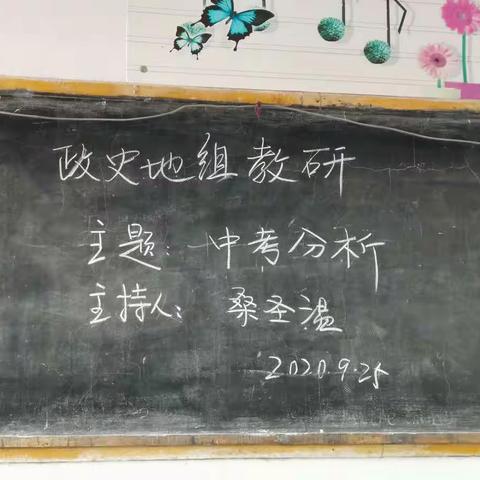 政史地组教研
主题：中考分析
主持人：桑圣温
2020.9.25